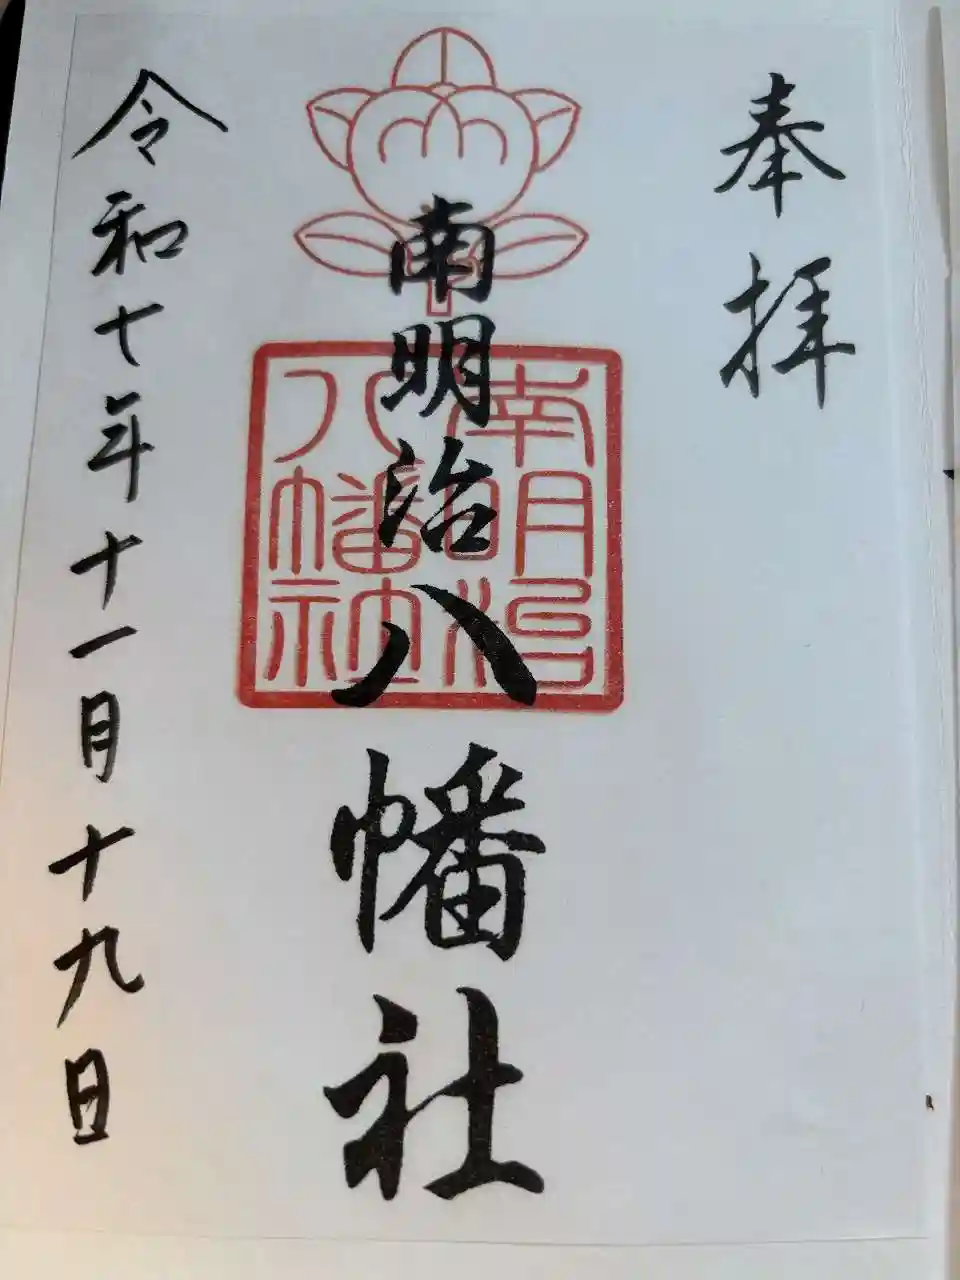 奉拝
南明治八幡社
南明治八幡社
令和七年十一月十九日